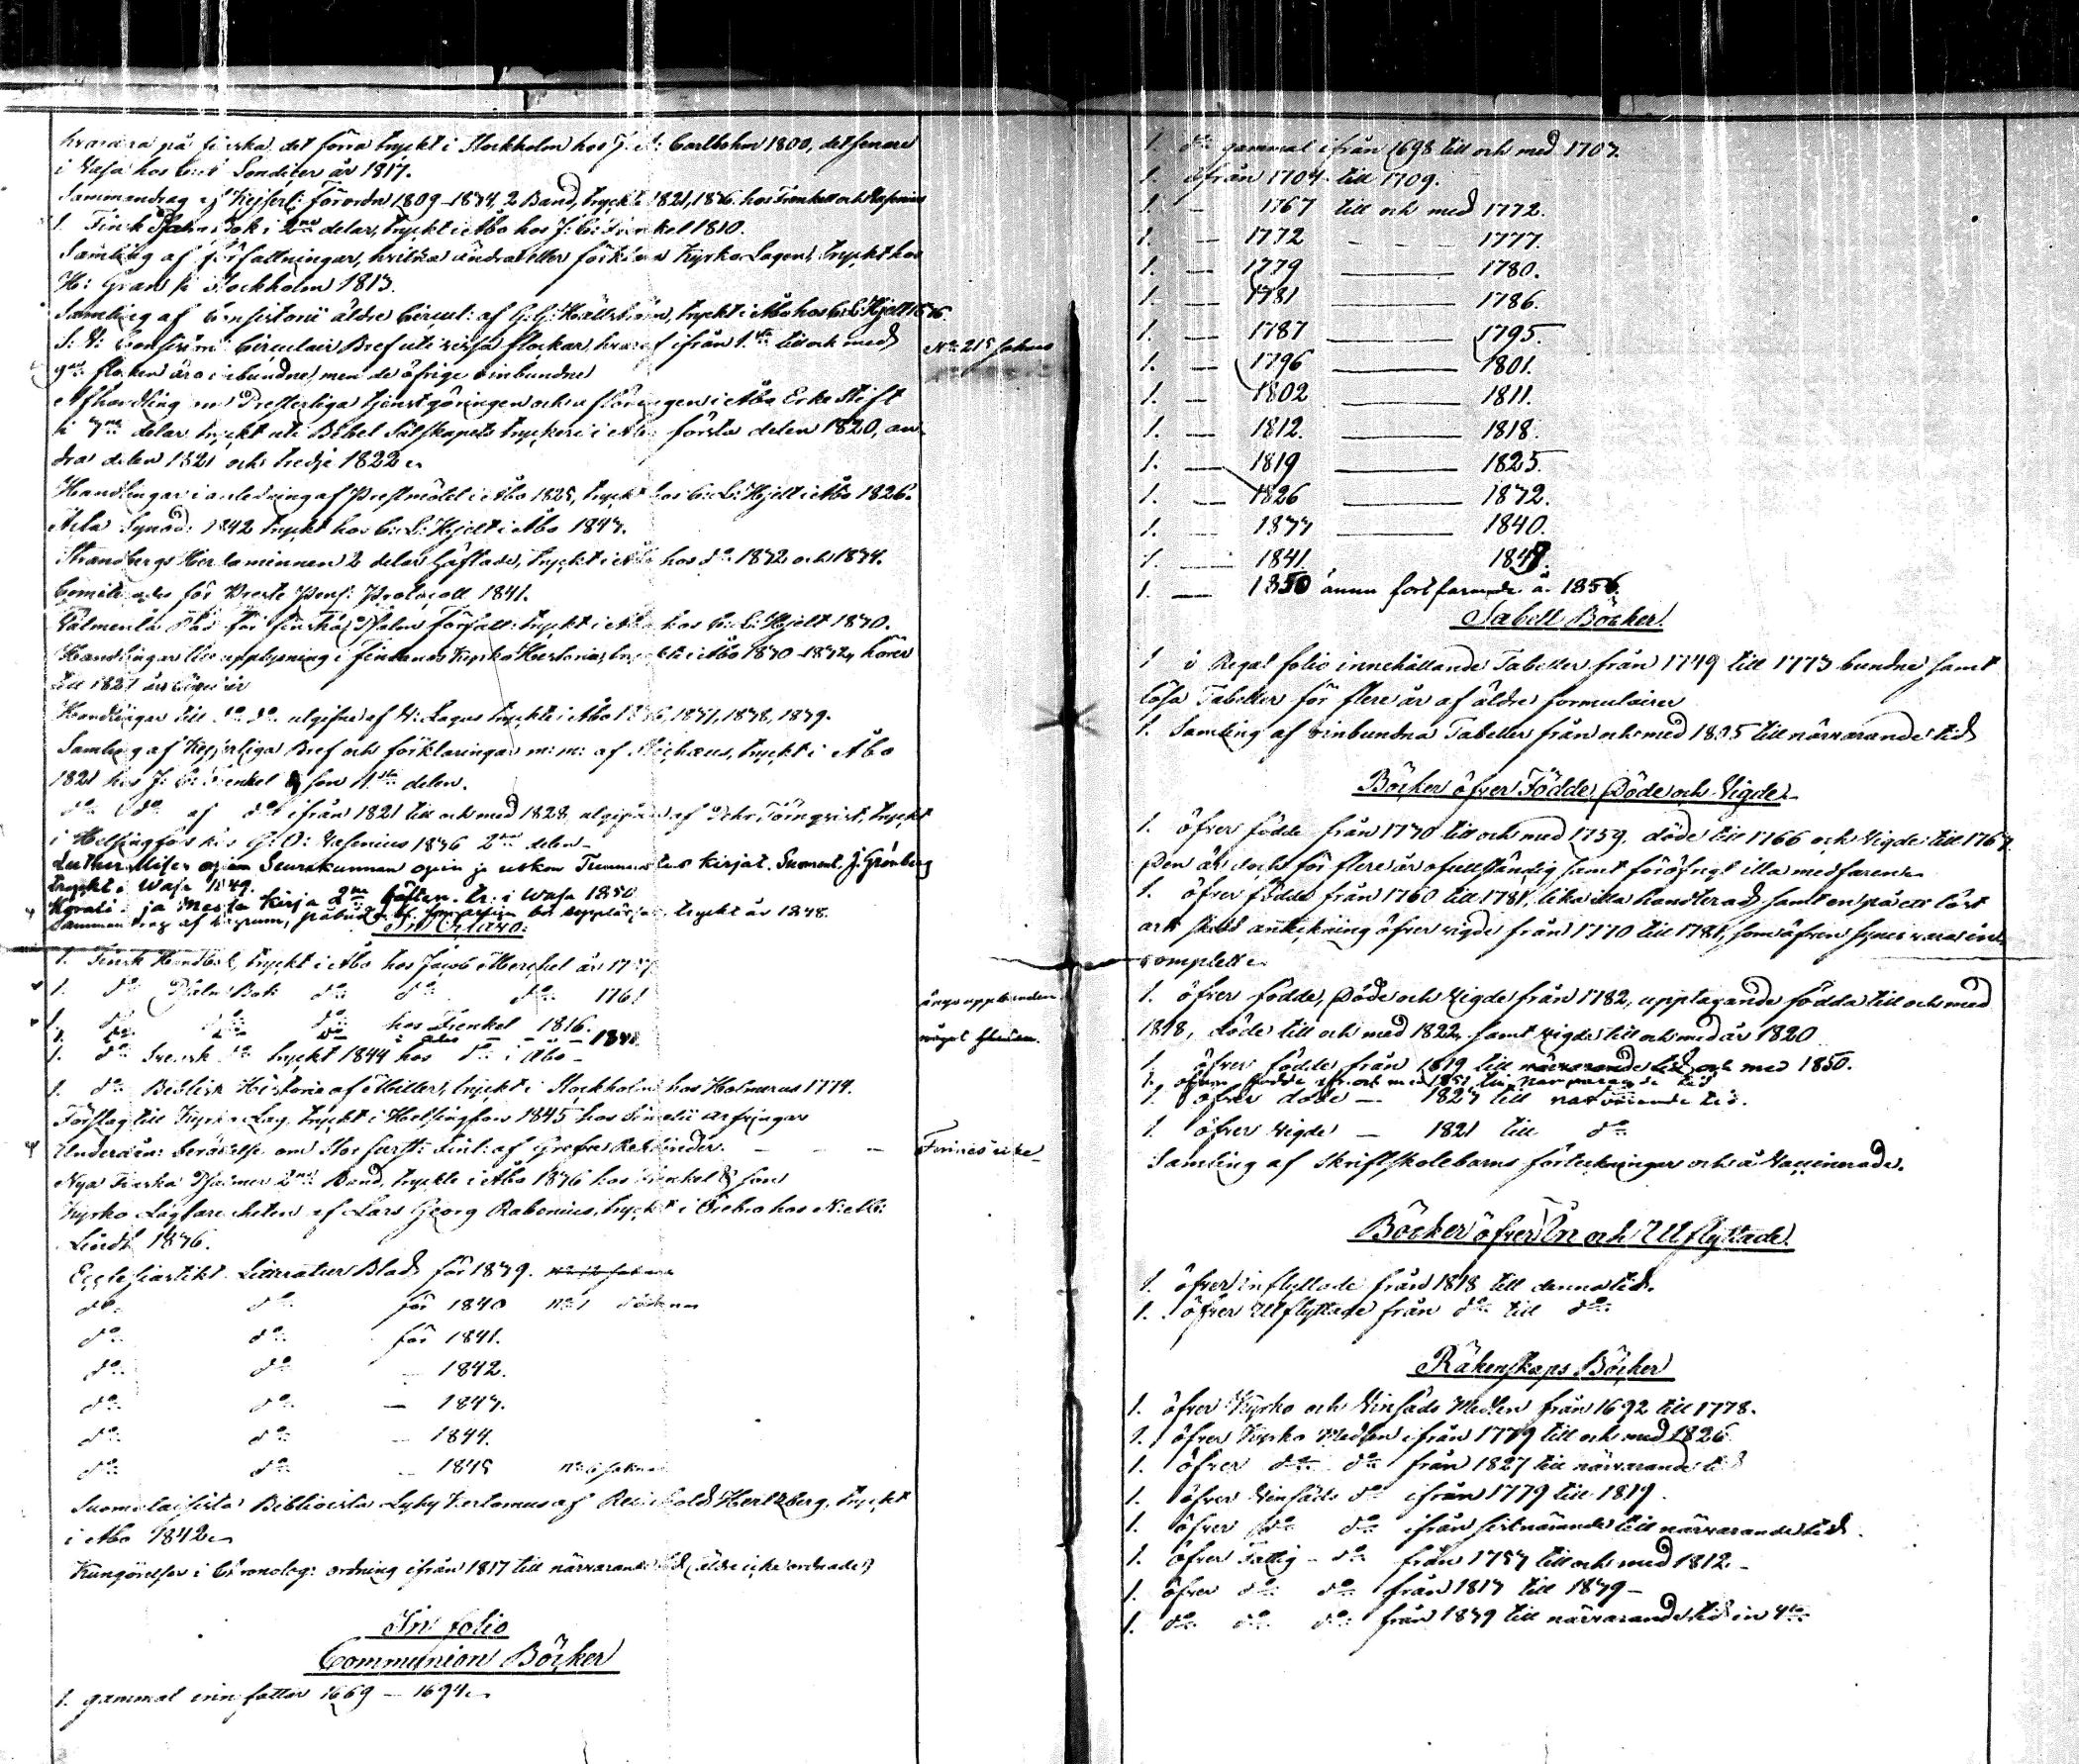 hvardera på finska det förra tryckt i Stockholm hos Carlbohm 1800, det senare
i Vasa hos Londicer år 1817.
Sammandrag af Kejserl: Förordn 1809–1834, 2 Band, tryckte 1821, 1836 hos Frenkell och Vasenius
1. Finsk Psalm Bok i 2ne delar, tryckt i Åbo hos J: C: Frenkel 1810.
Samling af författningar, hvilka ändrat eller förklara Kyrko Lagen, tryckt hos
H: Grahn i Stockholm 1813.
Samling af Consistorii äldre Circul: af G: G: Hällström, tryckt i Åbo hos C: L: Hjelt
Circulair Bref uti vissa flockar, hvaraf ifrån 1:sta till och med
No 215 saknas
flocken äro inbundne, men de öfrige oinbundne
Afhandling om Presterliga tjenstgöringen och aflöningen i Åbo Erke Stift
i 3ne delar tryckt uti Bibel Sälskapets tryckeri i Åbo, första delen 1820, an-
dra delen 1821 och tredje 1822
Handlingar i anledning af Prestmötet i Åbo 1825, tryckt hos C: L: Hjelt i Åbo 1826.
Acta Synod: 1842 tryckt hos C: L: Hjelt i Åbo 1843.
Strandbergs Herda minnen 2 delar häftade, tryckt i Åbo hos do 1832 och 1834.
för Preste Pens: Protocoll 1841.
för finska Psalm Författ: tryckt i Åbo hos C: L: Hjelt 1830.
Handlingar till upplysning i Finlands Kyrko Historia, tryckte i Åbo 1830–1832, hörer
till 1821 års
Handlingar till do do utgifne af W: Lagus tryckte i Åbo 1836, 1837, 1838, 1839.
Samling af Kejserliga Bref och förklaringar m: m: af Michæus, tryckt i Åbo
1821 hos J: C: Frenkel & son 1sta delen.
do do af do ifrån 1821 till och med 1828, utgifven af Törnqvist, tryckt
i Helsingfors hos G: O: Wasenius 1836 2dra delen
Luther Seurakunnan opin ja uskon kirjat. Suoment. J. Grönberg
tryckt i Wasa 1849.
Korali- ja Messu Kirja 2ne häften. tr. i Wasa 1850
tryckt år 1848.
In Octavo:
1. Finsk Handbok, tryckt i Åbo hos Jacob Merckel år
1. do Psalm Bok do do do 1761
ånyo uppbunden
1. do do do hos Frenkel 1816.
1. do do do 1848
1. do Svensk do tryckt 1844 hos do i Åbo
1. do Biblisk Historia af Miller, tryckt i Stockholm hos Holmerus 1774.
Förslag till Kyrko Lag tryckt i Helsingfors 1845 hos Simelii arfvingar
Underdån: berättelse om Stor furst: Finl: af Grefve Rehbinder. – – –
Finnes icke
Nya Finska Psalmer 2ne Band, tryckte i Åbo 1836 hos Frenkel & son
Kyrko Lagfarenheten af Lars Georg Rabenius, tryckt i Örebro hos N: M:
Lindh 1836.
Ecclesiastikt Litteratur Blad för 1839. No 12 saknas
do do för 1840 No 1
do do för 1841.
do do – 1842.
do do – 1843.
do do – 1844.
do do – 1845 No 6 saknas
Suomalaisista Biblioista Lyhy Kertomus af Reinhold Hertzberg, tryckt
i Åbo 1842
Kungörelser i Chronolog: ordning ifrån 1817 till närvarande tid (äldre icke ordnade)
In folio
Communion Böcker
1. gammal innefattar 1669 – 1694
1. do gammal ifrån 1698 till och med 1703.
1. ifrån 1704 till 1709.
1. – 1767 till och med 1772.
1. – 1772 – – – 1777.
1. – 1779 – 1780.
1. – 1781 – 1786.
1. – 1787 – 1795.
1. – 1796 – 1801.
1. – 1802 – 1811.
1. – 1812. – 1818.
1. – 1819 – 1825.
1. – 1826 – 1832.
1. – 1833 – 1840.
1. – 1841. 1849.
1. – 1850 ännu fortfarande år 1856.
Tabell Böcker.
1 i Regal folio innehållande Tabeller från 1749 till 1773 bundne samt
lösa Tabeller för flere år af äldre formulairer
1. Samling af oinbundna Tabeller från och med 1805 till närvarande tid
Böcker öfver Födde, Döde och Vigde
1. öfver födde från 1730 till och med 1759, döde till 1766 och Vigde till 1767.
Den är doch för flere år ofullständig samt föröfrigt illa medfaren
1. öfver födde från 1760 till 1781, lika illa handterad samt en på ett löst
ark skedd anteckning öfver vigde från 1770 till 1781, som äfven synes vara in-
complett
1. öfver födde, Döde och Vigde från 1782, upptagande födda till och med
1818, döde till och med 1822, samt vigde till och med år 1820
1. öfver födde från 1819 till närvarande tid och med 1850.
1. öfver födde fr. och med 1851 till närvarande tid
1. öfver döde – 1823 till närvarande tid.
1. öfver Vigde – 1821 till do
Samling af Skriftskolebarns förteckningar och å Vaccinerade.
Böcker öfver In och Utflyttade.
1. öfver inflyttade från 1818 till denna tid.
1. öfver Utflyttade från do till do
Räkenskaps Böcker
1. öfver Kyrko och Vinsäds Medlen från 1692 till 1778.
1. öfver Kyrko Medlen ifrån 1779 till och med 1826
1. öfver do do från 1827 till närvarande tid
1. öfver Vinsäds do ifrån 1779 till 1819.
1. öfver do do ifrån sistnämnde till närvarande tid.
1. öfver Fattig – do från 1757 till och med 1812 –
1. öfver do do från 1813 till 1839 –
1. do do do från 1839 till närvarande tid in 4to